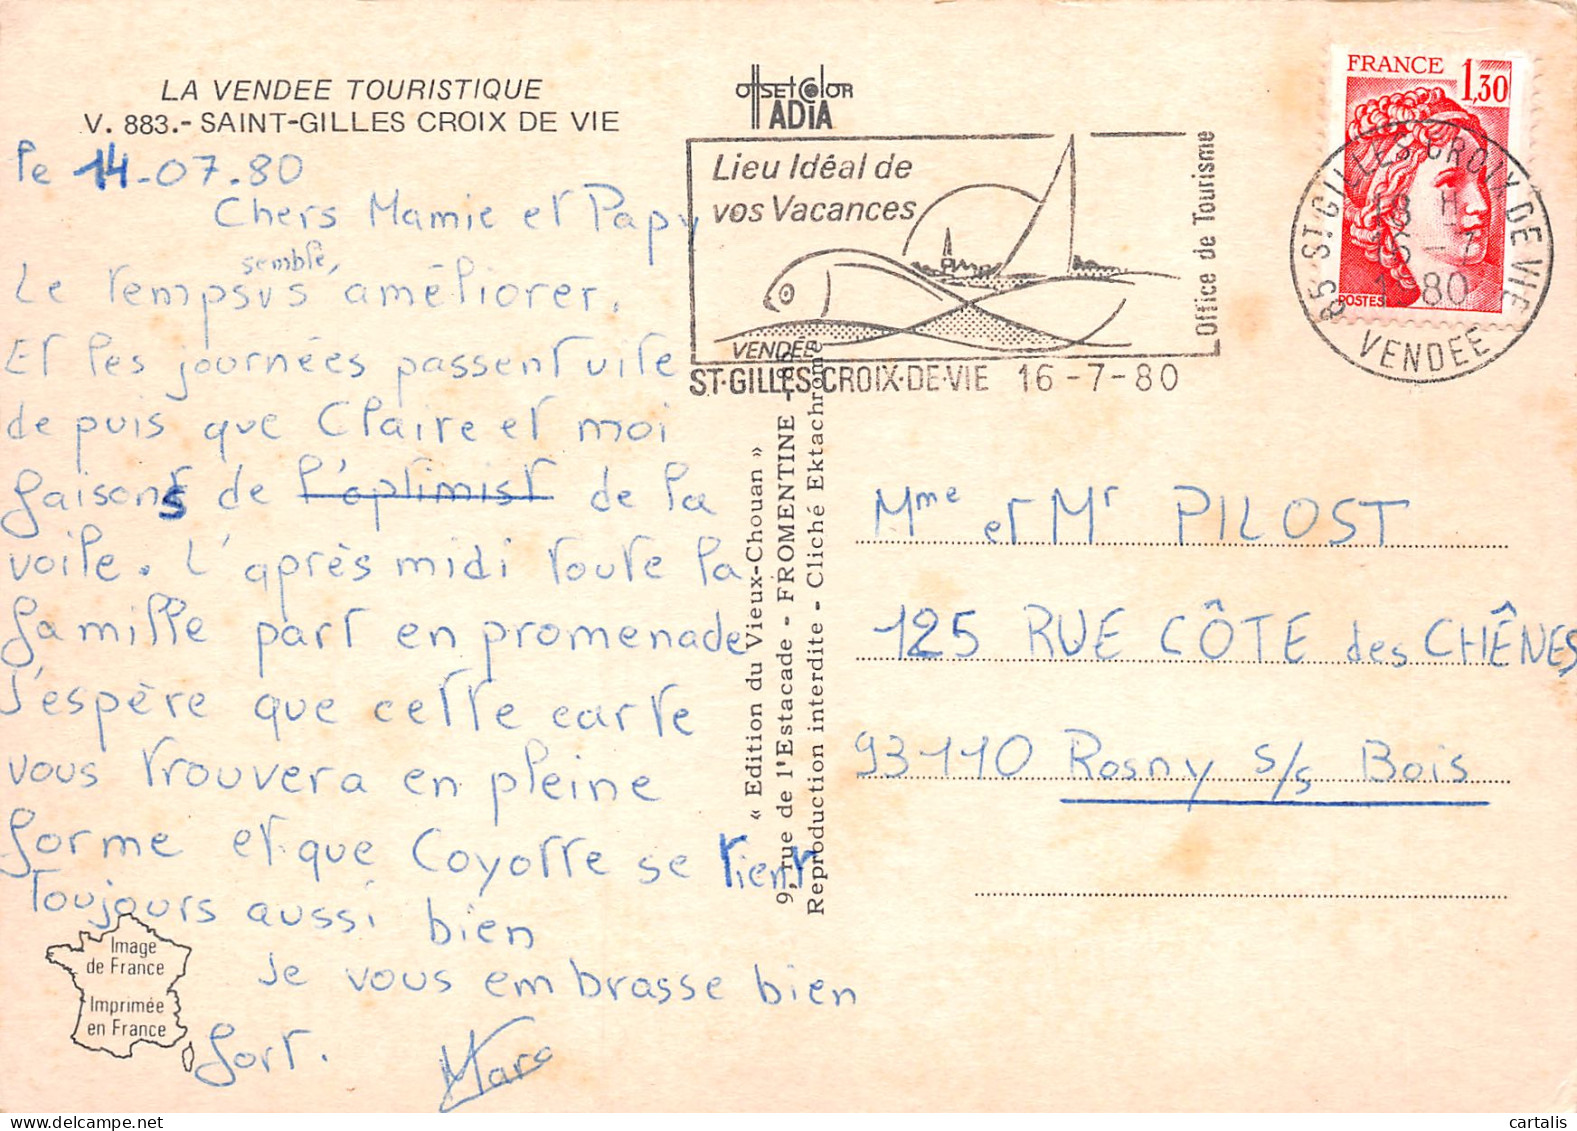 LA VENDEE TOURISTIQUE
V. 883.- SAINT-GILLES CROIX DE VIE
le 14-07-80
Chers Mamie et Papy
semble,
Le temps s améliorer.
Et les journées passent vite
depuis que Claire et moi
faisons de l'optimist de la
voile. L'après midi toute la
famille part en promenade
J'espère que cette carte
vous trouvera en pleine
forme et que Coyotte se tient
Toujours aussi bien
Je vous embrasse bien
fort. Marc
Image
de France
Imprimée
en France
offset color
ADIA
Lieu Idéal de
vos Vacances
VENDEE
Office de Tourisme
ST-GILLES-CROIX-DE-VIE 16-7-80
« Edition du Vieux-Chouan »
9, rue de l'Estacade - FROMENTINE - 85
Reproduction interdite - Cliché Ektachrome
FRANCE 1,30
POSTES
85 ST-GILLES CROIX DE VIE
18 H
16-7
1980
VENDEE
Mme et Mr PILOST
125 RUE CÔTE des CHÊNES
93110 Rosny s/s Bois
cartalis
www.delcampe.net